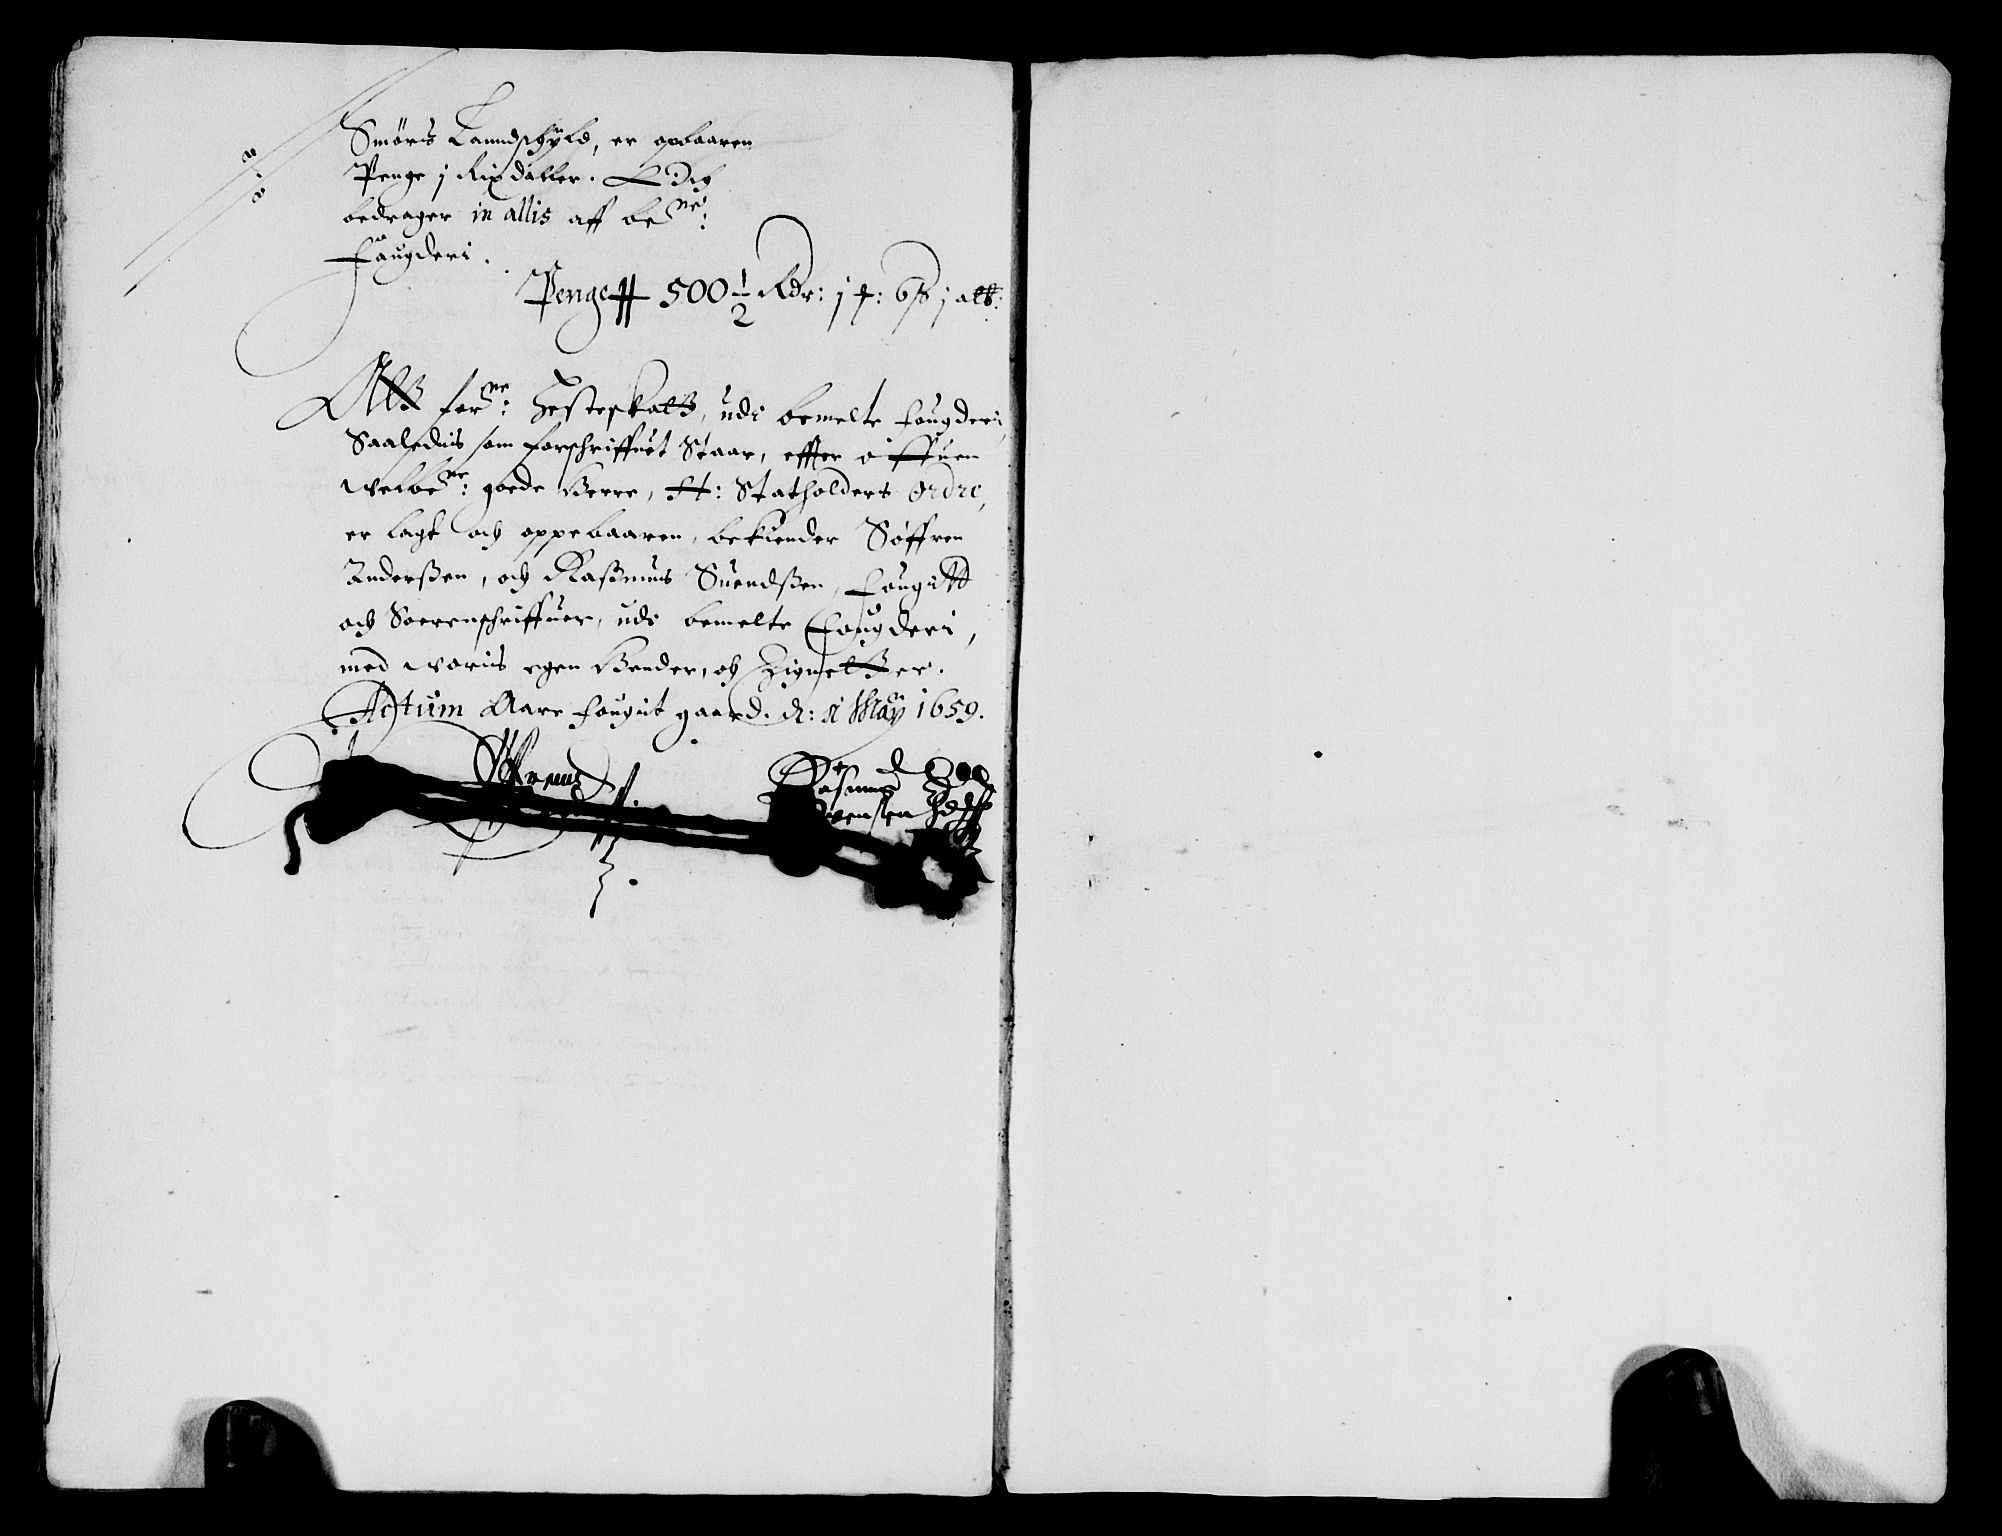 Smørs Lanndschyld, er opbaaren
Penge j Rixdaller. Och
bedrager in allis aff be ne:
Faugderi.
Penge 500 1/2 Rdr: j
Alt for ne: Hesteskatt, udi bemelte fougderi,
Saalednis som forschriffuet Staar, effter
welbe ne: goede Herre, H: Statholders Ordre,
er lagt och oppebaaren, bekiender Søffren
Anderßen, och Raßmus Suendßen, fougitt
och Soerenschriffuer, udi bemelte Fougderi,
med woris egen Hender, och Zignetter.
Actum Aare fougit gaard. d: Maÿ 1659.
Rasmus
Svensen